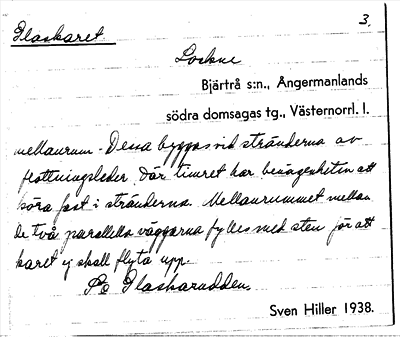 Glaskaret.
3.
Lockne
Bjärtrå s:n., Ångermanlands
södra domsagas tg., Västernorrl. l.
mellanrum. Dessa byggas vid stränderna av
flottningsleder där timret har benägenheten att
köra fast i stränderna. Mellanrummet mellan
de två parallella väggarna fylles med sten för att
karet ej skall flyta upp.
Se Glaskarudden.
Sven Hiller 1938.